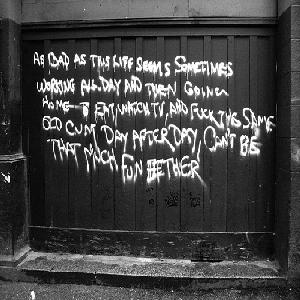 AS BAD AS THIS LIFE SEEMS SOMETIMES
WORKING ALL DAY AND THEN GOING
HOME TO EAT, WATCH TV, AND FUCK THE SAME
OLD CUNT DAY AFTER DAY, CAN'T BE
THAT MUCH FUN EETHER